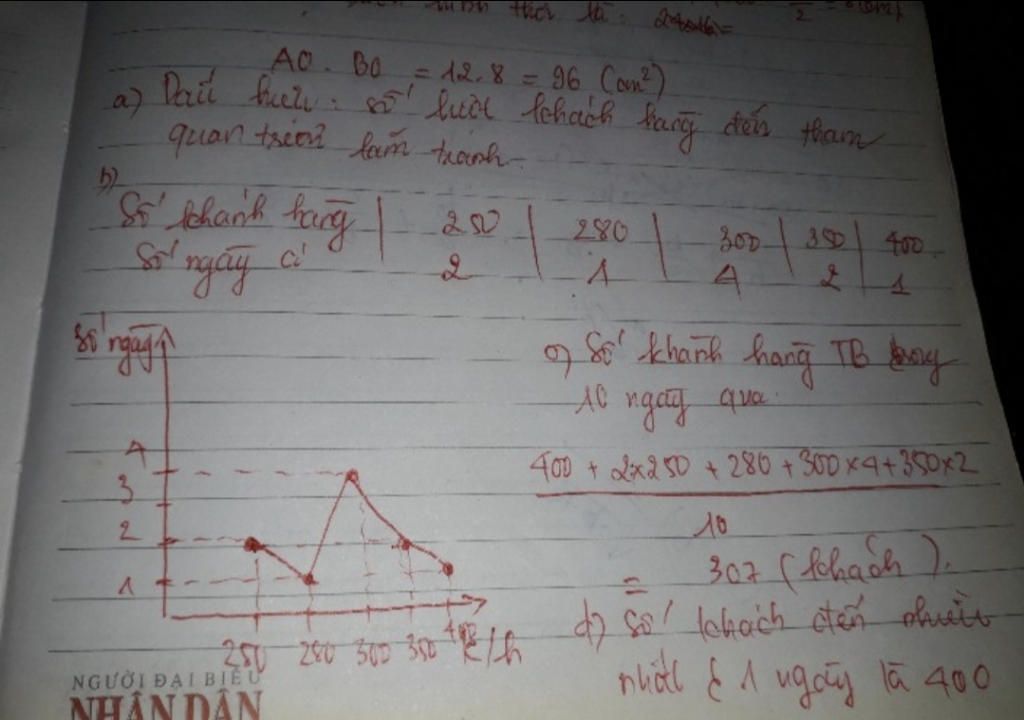 AO . BO = 12.8 = 96 (cm²)
a) Dấu hiệu : số lượt khách hàng đến tham
quan triển lãm tranh.
b)
Số khách hàng | 250 | 280 | 300 | 350 | 400
Số ngày | 2 | 1 | 4 | 2 | 1
số ngày
4
3
2
1
250 280 300 350 400 k/h
c) Số khách hàng TB trong
10 ngày qua
400 + 2×250 + 280 + 300×4 + 350×2
10
= 307 (khách).
d) Số khách đến nhiều
nhất 1 ngày là 400
NGƯỜI ĐẠI BIỂU
NHÂN DÂN